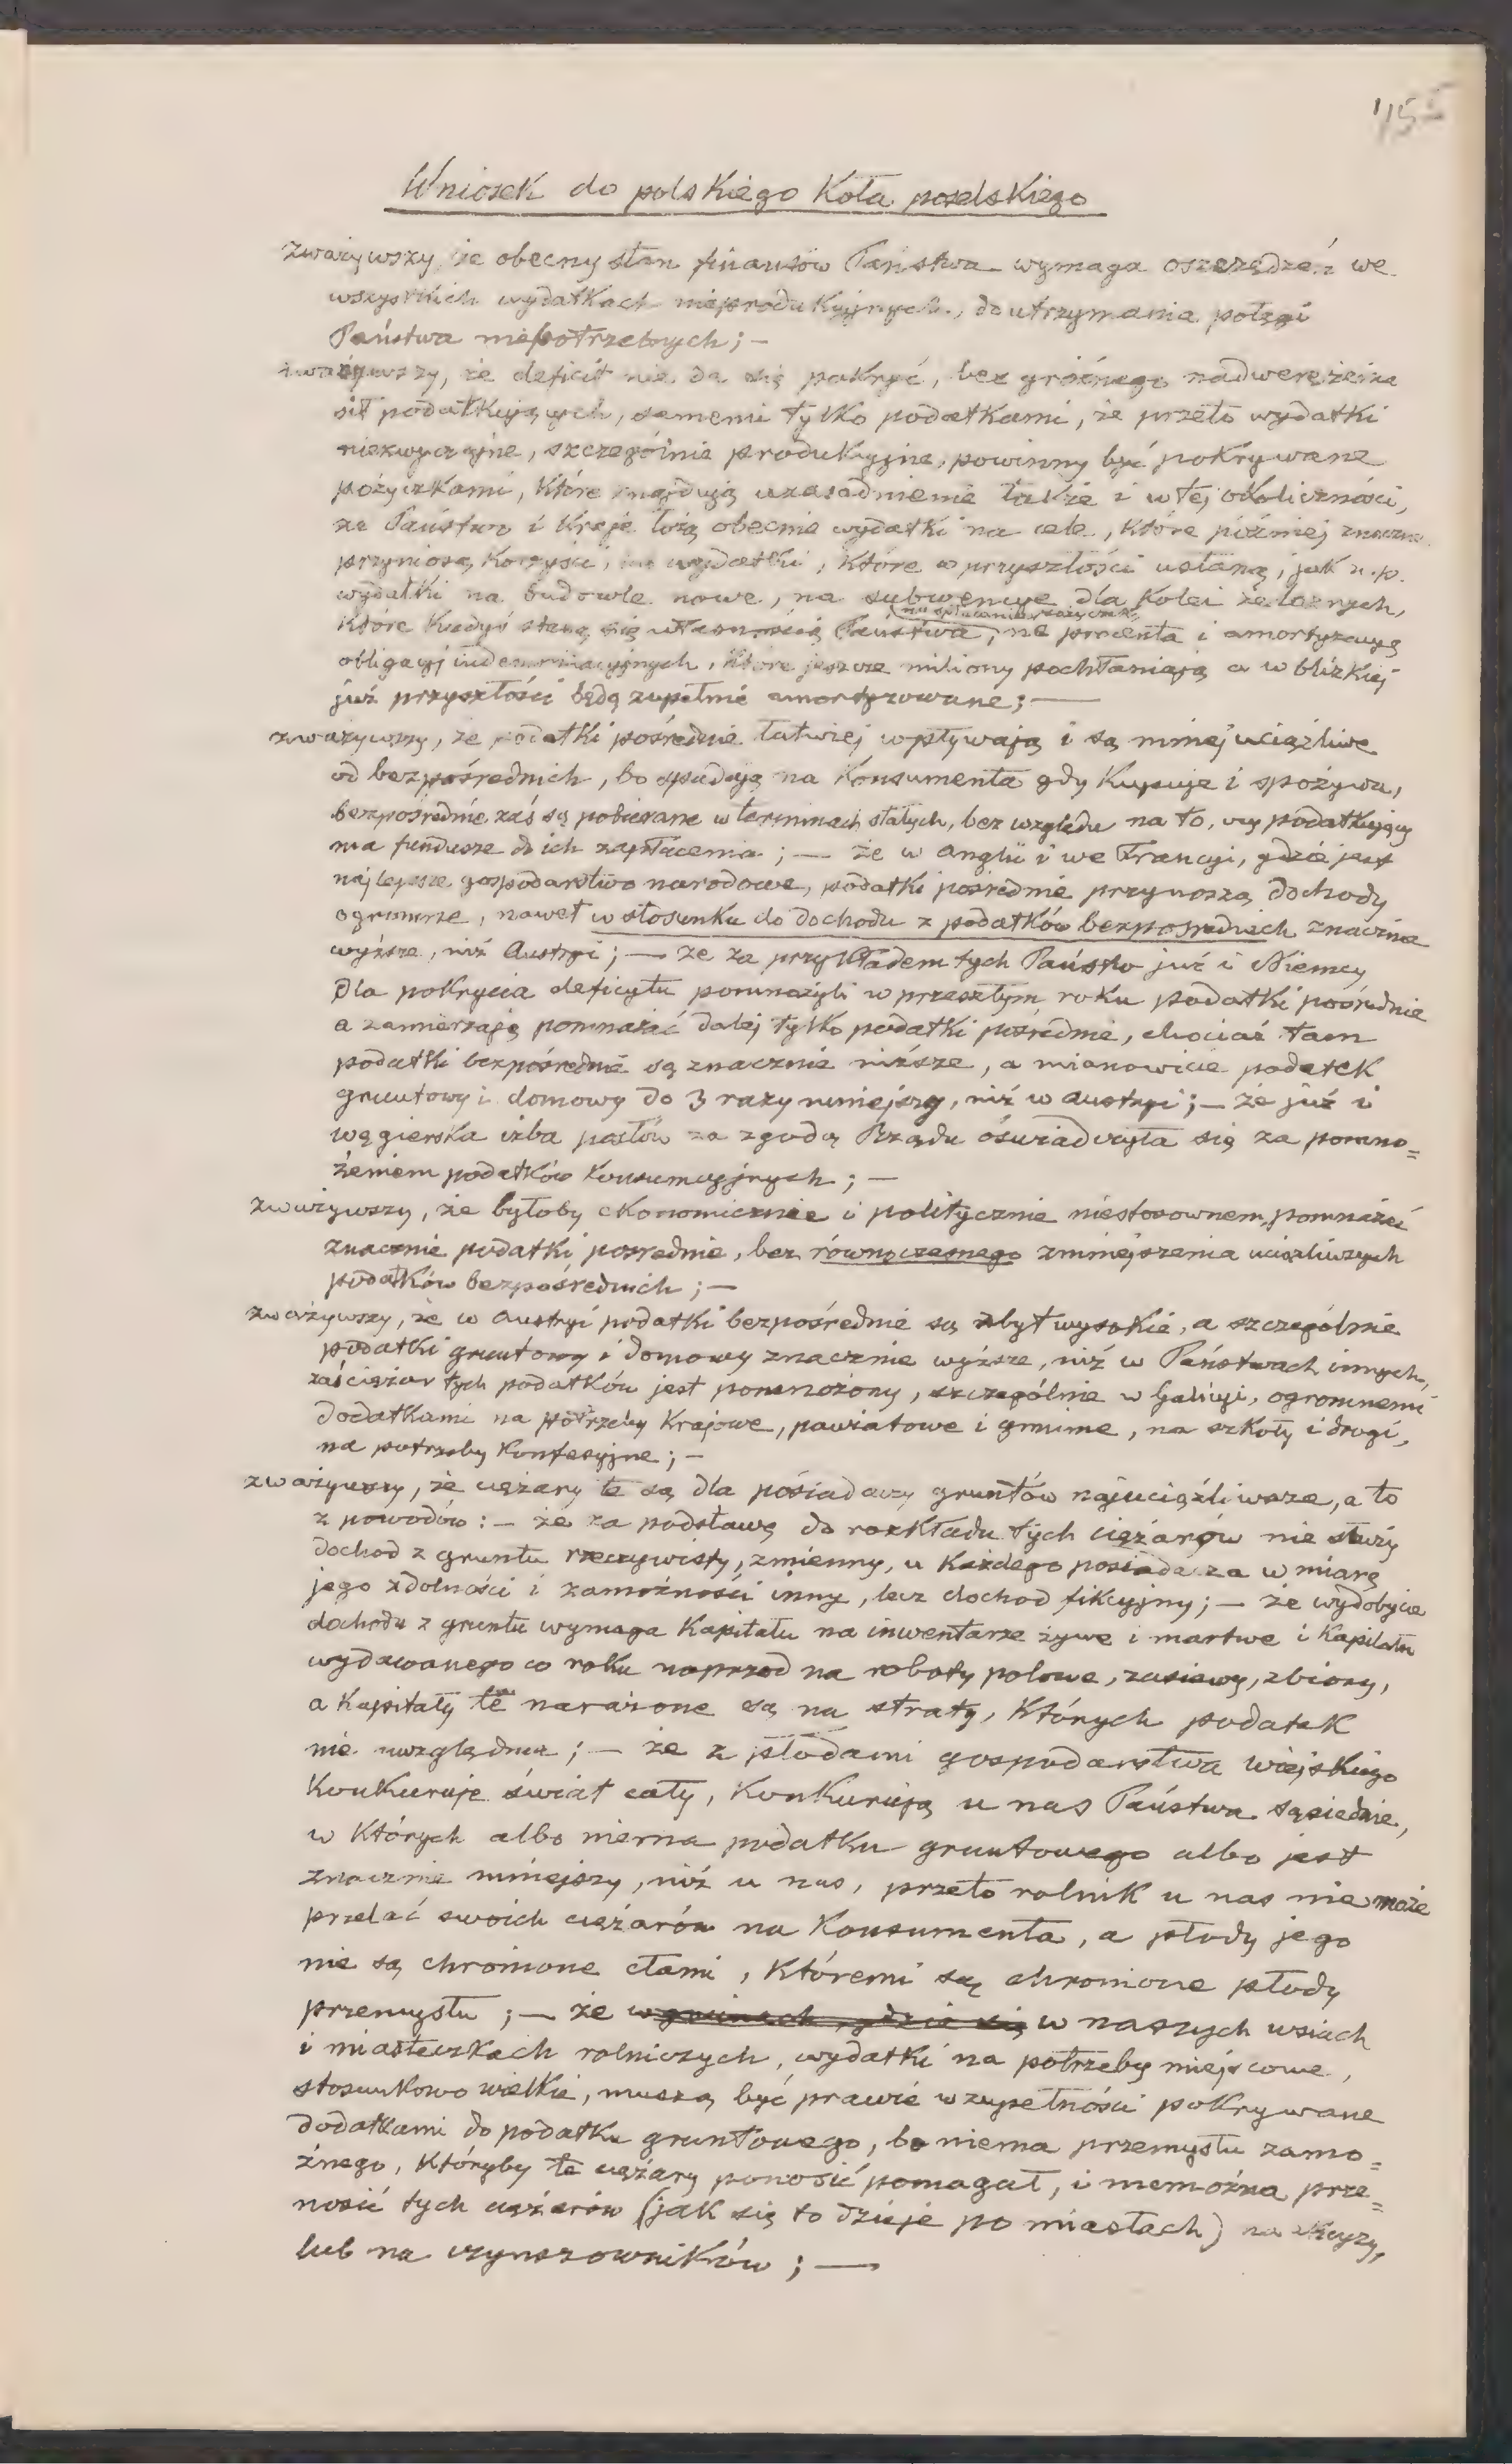 155
Wniosek do polskiego Koła poselskiego
zważywszy, że obecny stan finansów Państwa wymaga oszczędzeń we
wszystkich wydatkach nieprodukcyjnych, do utrzymania potęgi
Państwa niepotrzebnych; —
zważywszy, że deficit nie da się pokryć, bez groźnego nadwerężenia
sił podatkujących, samemi tylko podatkami, że przeto wydatki
niezwyczajne, szczególnie produkcyjne, powinny być pokrywane
pożyczkami, które znajdują uzasadnienie także i w tej okoliczności,
że Państwo i Kraje łożą obecnie wydatki na cele, które później znaczne
przyniosą korzyści, i wydatki, które w przyszłości ustaną, jak n.p.
wydatki na budowle nowe, na subwencye dla Kolei żelaznych,
które kiedyś staną się własnością Państwa, na procenta i amortyzacyą
obligacyj indemnizacyjnych, które jeszcze miliony pochłaniają a w blizkiej
już przyszłości będą zupełnie amortyzowane; —
zważywszy, że podatki pośrednie łatwiej wpływają i są mniej uciążliwe
od bezpośrednich, bo spadają na Konsumenta gdy Kupuje i spożywa,
bezpośrednie zaś są pobierane w terminach stałych, bez względu na to, czy podatkujący
ma fundusze do ich zapłacenia; — że w Anglii i we Francyi, gdzie jest
najlepsze gospodarstwo narodowe, podatki pośrednie przynoszą dochody
ogromne, nawet w stosunku do dochodu z podatków bezpośrednich znacznie
wyższe, niż Austryi; — że za przykładem tych Państw już i Niemcy
dla pokrycia deficytu pomnożyli w przeszłym roku podatki pośrednie
a zamierzają pomnażać dalej tylko podatki pośrednie, chociaż tam
podatki bezpośrednie są znacznie niższe, a mianowicie podatek
gruntowy i domowy do 3 razy mniejszy, niż w Austryi; — że już i
węgierska izba posłów za zgodą Rządu oświadczyła się za pomno=
żeniem podatków Konsumcyjnych; —
zważywszy, że byłoby ekonomicznie i politycznie niestosownem, pomnażać
znacznie podatki pośrednie, bez równoczesnego zmniejszenia uciążliwszych
podatków bezpośrednich; —
zważywszy, że w Austryi podatki bezpośrednie są zbyt wysokie, a szczególnie
podatki gruntowy i domowy znacznie wyższe, niż w Państwach innych,
zaś ciężar tych podatków jest pomnożony, szczególnie w Galicyi, ogromnemi
dodatkami na potrzeby Krajowe, powiatowe i gminne, na szkoły i drogi,
na potrzeby Konfesyjne; —
zważywszy, że ciężary te są dla posiadaczy gruntów najuciążliwsze, a to
z powodów: — że za podstawę do rozkładu tych ciężarów nie służy
dochod z gruntu rzeczywisty, zmienny, u Każdego posiadacza w miarę
jego zdolności i zamożności inny, lecz dochod fikcyjny; — że wydobycie
dochodu z gruntu wymaga Kapitału na inwentarze żywe i martwe i Kapitału
wydawanego co roku naprzod na roboty polowe, zasiewy, zbiory,
a Kapitały te narażone są na straty, Których podatek
nie uwzględnia; — że z płodami gospodarstwa wiejskiego
Konkuruje świat cały, Konkurują u nas Państwa sąsiednie,
w Których albo niema podatku gruntowego albo jest
znacznie mniejszy, niż u nas, przeto rolnik u nas nie może
przelać swoich ciężarów na Konsumenta, a płody jego
nie są chronione cłami, Któremi są chronione płody
przemysłu; — że w gminach, gdzie się w naszych wsiach
i miasteczkach rolniczych, wydatki na potrzeby miejscowe,
stosunkowo wielkie, muszą być prawie w zupełności pokrywane
dodatkami do podatku gruntowego, bo niema przemysłu zamo=
żnego, Któryby te ciężary ponosić pomagał, i niemożna prze=
nosić tych ciężarów (jak się to dzieje po miastach) na
lub na czynszowników; —